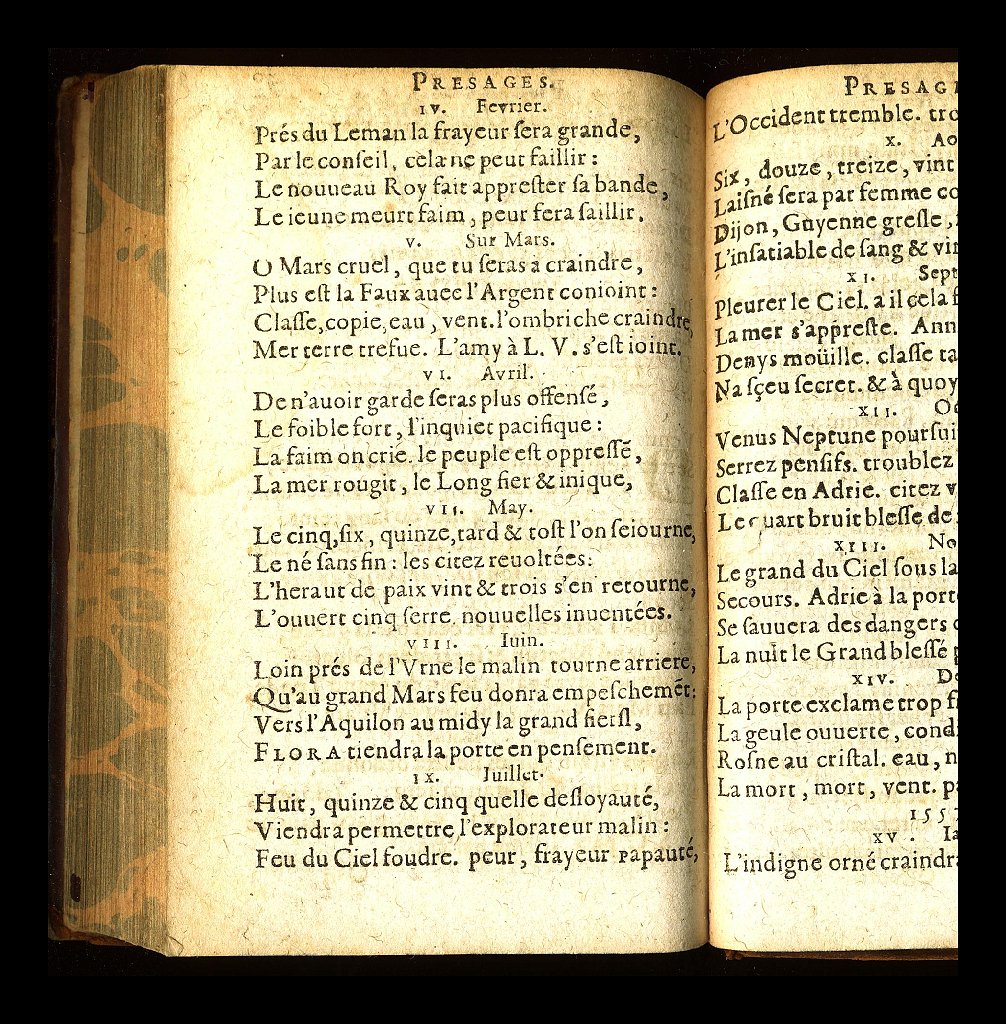 PRESAGES.
IV. Fevrier.
Prés du Leman la frayeur sera grande,
Par le conseil, cela ne peut faillir:
Le nouueau Roy fait apprester sa bande,
Le ieune meurt faim, peur fera saillir.
V. Sur Mars.
O Mars cruel, que tu seras à craindre,
Plus est la Faux auec l'Argent conioint:
Classe, copie, eau, vent. l'ombriche craindre,
Mer terre trefue. L'amy à L. V. s'est ioint.
VI. Avril.
De n'auoir garde seras plus offensé,
Le foible fort, l'inquiet pacifique:
La faim on crie. le peuple est oppressé,
La mer rougit, le Long fier & inique,
VII. May.
Le cinq, six, quinze, tard & tost l'on seiourne,
Le né sans fin: les citez reuoltées:
L'heraut de paix vint & trois s'en retourne,
L'ouuert cinq serre. nouuelles inuentées.
VIII. Iuin.
Loin prés de l'Vrne le malin tourne arriere,
Qu'au grand Mars feu donra empeschemẽt:
Vers l'Aquilon au midy la grand fiersl,
FLORA tiendra la porte en pensement.
IX. Juillet.
Huit, quinze & cinq quelle desloyauté,
Viendra permettre l'explorateur malin:
Feu du Ciel foudre. peur, frayeur papauté,
PRESAG
L'Occident tremble. tro
X. Ao
Six, douze, treize, vint
Laisné sera par femme co
Dijon, Guyenne gresle,
L'insatiable de sang & vin
XI. Sept
Pleurer le Ciel. a il cela f
La mer s'appreste. Ann
Denys moüille. classe ta
Na sçeu secret. & à quoy
XII. O
Venus Neptune poursui
Serrez pensifs. troublez
Classe en Adrie. citez v
Le quart bruit blesse de
XIII. No
Le grand du Ciel sous la
Secours. Adrie à la port
Se sauuera des dangers
La nuit le Grand blessé
XIV. De
La porte exclame trop f
La geule ouuerte, cond
Rosne au cristal. eau, n
La mort, mort, vent. p
155
XV. Ia
L'indigne orné craindr